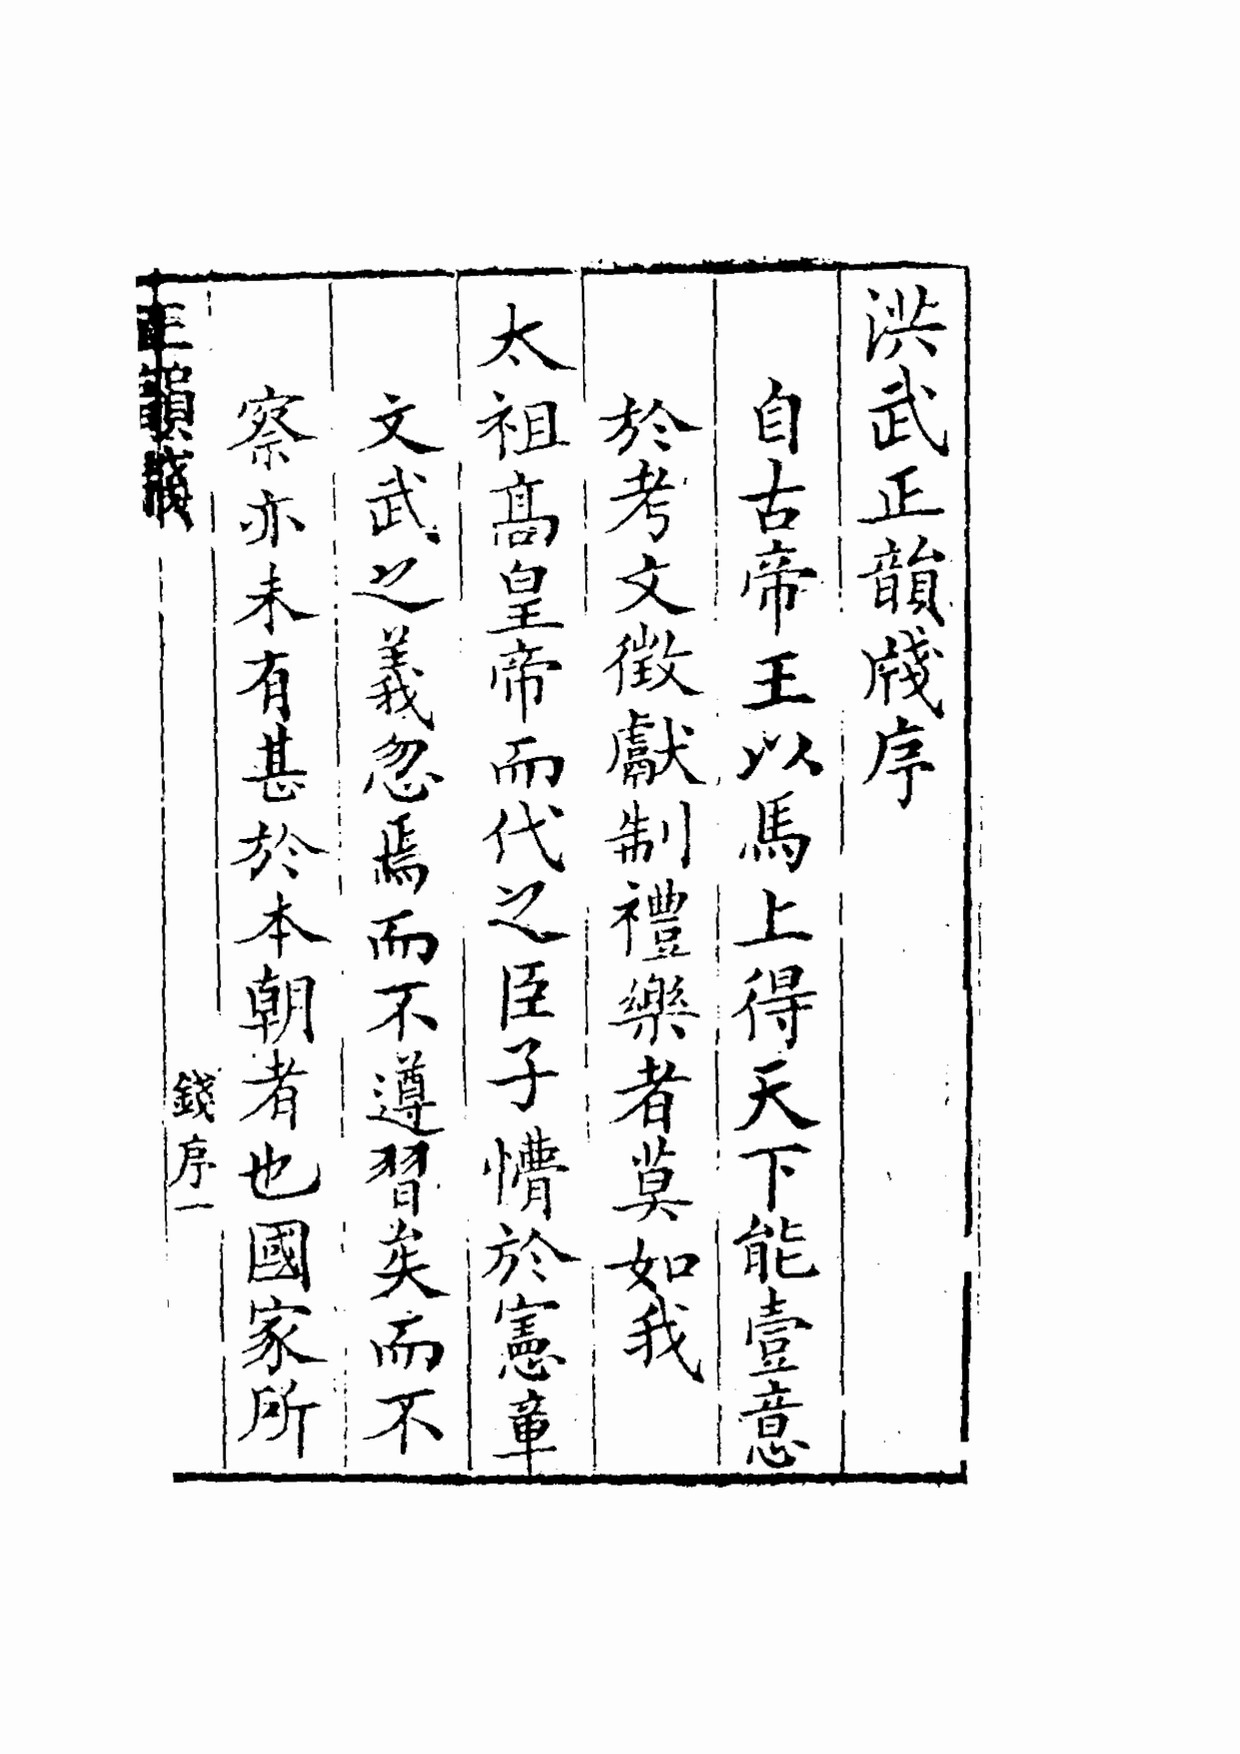 洪武正韻牋序
自古帝王以馬上得天下能壹意
於考文徵獻制禮樂者莫如我
太祖高皇帝而代之臣子懵於憲章
文武之義忽焉而不遵習矣而不
察亦未有甚於本朝者也國家所
正韻牋
錢序一